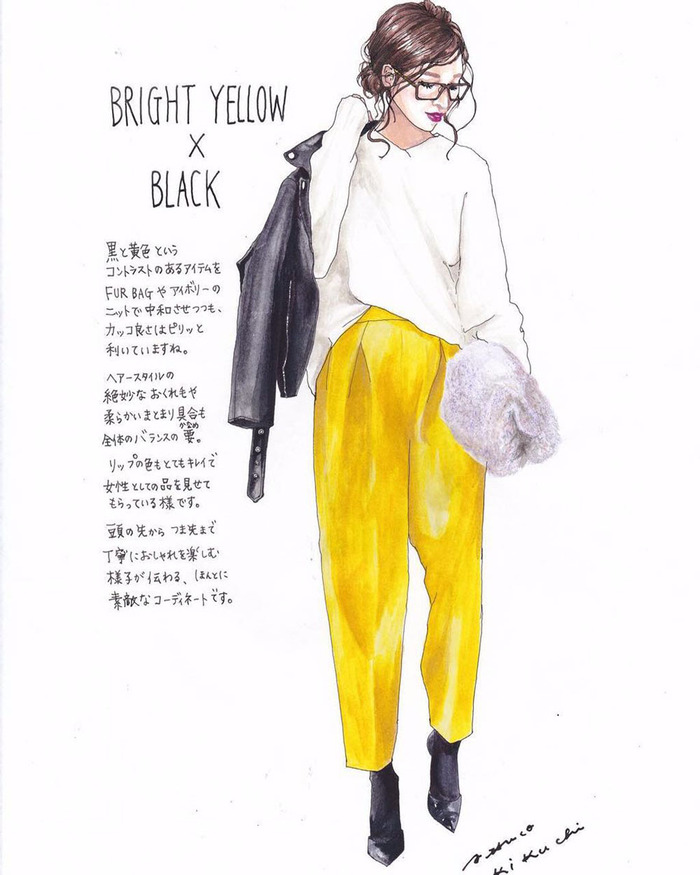 BRIGHT YELLOW
X
BLACK
黒と黄色という
コントラストのあるアイテムを
FUR BAG や アイボリーの
ニットで中和させつつも、
カッコ良さはピリッと
利いていますね。
ヘアースタイルの
絶妙な おくれ毛や
柔らかいまとまり具合も
全体のバランスの 要。
かなめ
リップの色もとてもキレイで
女性としての品を見せて
もらっている様です。
頭の先から つま先まで
丁寧におしゃれを楽しむ
様子が伝わる、ほんとに
素敵なコーディネートです。
Kikuchi